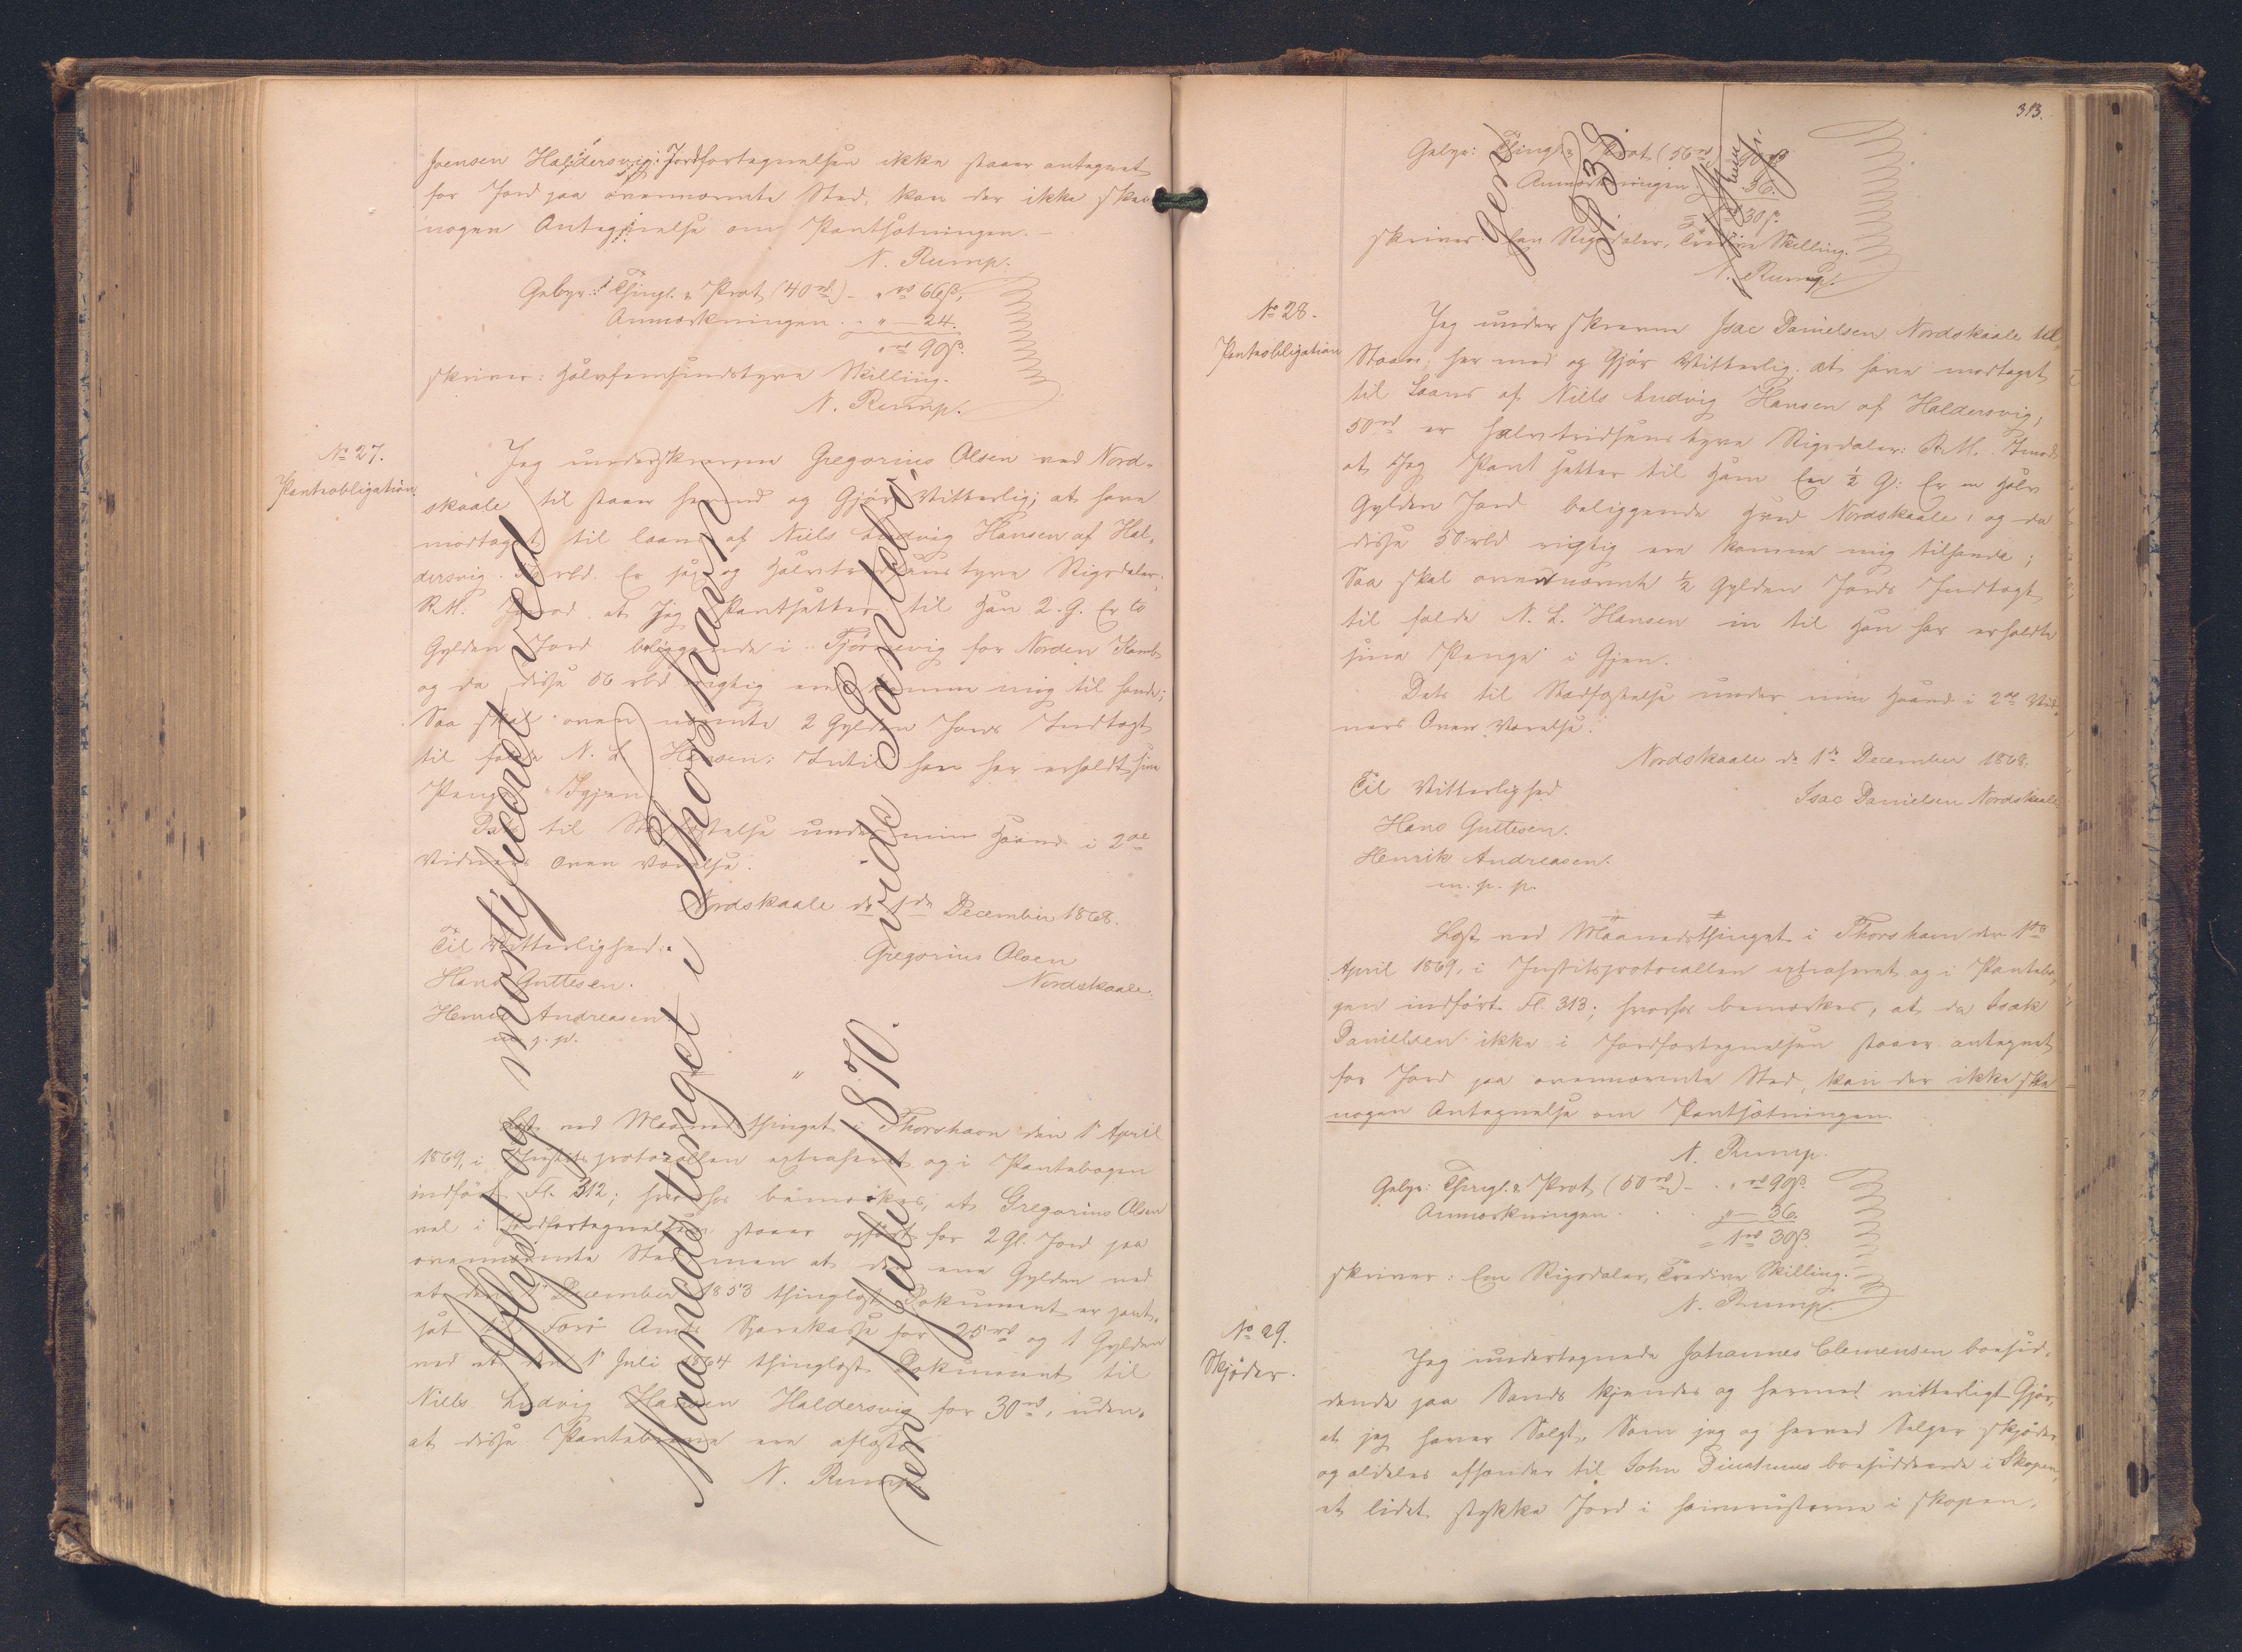 Joensen Haldersvig i Jordfortegnelsen ikke staaer antegnet
for Jord paa ovennævnte Sted, kan der ikke skee
nogen Antegnelse om Pantsætningen. -
N. Rump.
Gebyr: Thingl. & Prot (40 rd) - " rd 66 ß,
Anmærkningen . . " - 24.
" rd 90 ß.
skriver: Halvfemsindstyve Skilling.
N. Rump.
No 27.
Panteobligation.
Jeg underskrevne Gregorius Olsen ved Nord-
skaale til staaer hermed og Gjør Vitterlig; at have
modtaget til laans af Niels Ludvig Hansen af Hal-
dersvig. 56 rbd. Er sex og Halvtredsindstyve Rigsdaler.
R.M. Imod at Jeg Pantsætter til Han 2. G. Er to
Gylden Jord beliggende i Tjørnevig for Norden Kamb
og da disse 56 rbd rigtig ere komme mig til hande;
Saa skal oven nævnte 2 Gylden Jords Indtægt
til falde N. L. Hansen; Indtil han har erholdt sine
Penge Igjen.
Dets til Stadfæstelse under min Haand i 2de
Vidners Over Værelse.
Nordskaale d. 1de December 1868.
Til Vitterlighed.
Gregorius Olsen
Hans Guttesen.
Nordskaale.
Henrik Andreasen.
m. p. p.
"
Læst ved Maanedsthinget i Thorshavn den 1' April
1869, i Justitsprotocollen extraheret og i Pantebogen
indført Fl. 312; hvorhos bemærkes, at Gregorius Olsen
vel i Jordfortegnelsen staaer opført for 2 Gl. Jord paa
ovennævnte Sted men at den ene Gylden ved
et den 1' December 1853 thinglæst Dokument er pant-
sat til Færø Amts Sparekasse for 25 rd og 1 Gylden
ved et den 1' Juli 1864 thinglæst Dokument til
Niels Ludvig Hansen Haldersvig for 30 rd, uden
at disse Pantebreve ere aflæste.
N. Rump.
Aflyst og mortificeret ved
Maanedstinget i Thorshavn
den 1 Juli 1870. vide Pantebo-
313.
gen
Fl 389.
Gebyr: Thingl. & Prot (56 rd) 90 ß
Anmærkningen 36.
30 ß.
skriver: Een Rigsdaler, Tredive Skilling.
N. Rump.
No 28.
Panteobligation
Jeg underskrevne Isac Danielsen Nordskaale til
Staaer, her med og Gjør Vitterlig, at have modtaget
til Laans af Niels Ludvig Hansen af Haldersvig,
50 rd er halvtredsindstyve Rigsdaler: R.M. Imod
at Jeg Pant sætter til Ham Een ½ G: Er en Halv
Gylden Jord beliggende Hved Nordskaale, og da
disse 50 rbd rigtig ere komme mig tilhande;
Saa skal ovennævnte ½ Gylden Jords Indtægt
til falde N. L. Hansen in til Han har erholdte
sine Penge i Gjen.
Dets til Stadfæstelse under min Haand i 2de Vid-
ners Over Værelse.
Nordskaale d. 1de December 1868.
Til Vitterlighed
Isac Danielsen Nordskaale
Hans Guttesen.
Henrik Andreasen.
m. p. p.
Læst ved Maanedsthinget i Thorshavn den 1ste
April 1869, i Justitsprotocollen extraheret og i Pantebo-
gen indført Fl. 313; hvorhos bemærkes, at da Isak
Danielsen ikke i Jordfortegnelsen staaer antegnet
for Jord paa ovennævnte Sted, kan der ikke skee
nogen Antegnelse om Pantsætningen.
N. Rump.
Gebyr: Thingl. & Prot (50 rd) - . " rd 90 ß
Anmærkningen . . . " - 36.
= 1 rd 30 ß.
skriver: Een Rigsdaler, Tredive Skilling.
N. Rump.
No 29.
Skjøder.
Jeg undertegnede Johannes Clemensen boesid-
dende paa Sands kjendes og hermed vitterligt Gjør,
at jeg haver Solgt, Som jeg og herved Sælger skjøder
og aldeles afhænder til John boesiddende i Skopen,
et lidet stykke Jord i i Skopen,